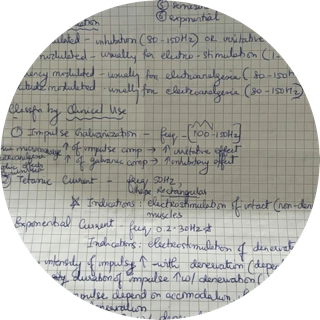 ⑥ exponential
ulated - inhibition (80-150Hz) or irritative
modulated - usually for electro-stimulation (1-
ency modulated - usually for electroanalgesia (80-150H
itude modulated - usually for electroanalgesia (80-150Hz)
Classifn by Clinical Use
① Impulse Galvanization - freq - [100-150Hz]
↑ of impulse comp → ↑ irritative effect
↑ of galvanic comp → ↑ inhibitory effect
Tetanic Current - freq 50Hz,
shape Rectangular
☆ Indications: electrostimulation of intact (non-den
muscles
Exponential Current - freq 0.2-30Hz
Indications: electrostimulation of denervat
intensity of impulse ↑ with denervation (depe
duration of impulse ↑ w/ denervation (
impulse depend on accomodation